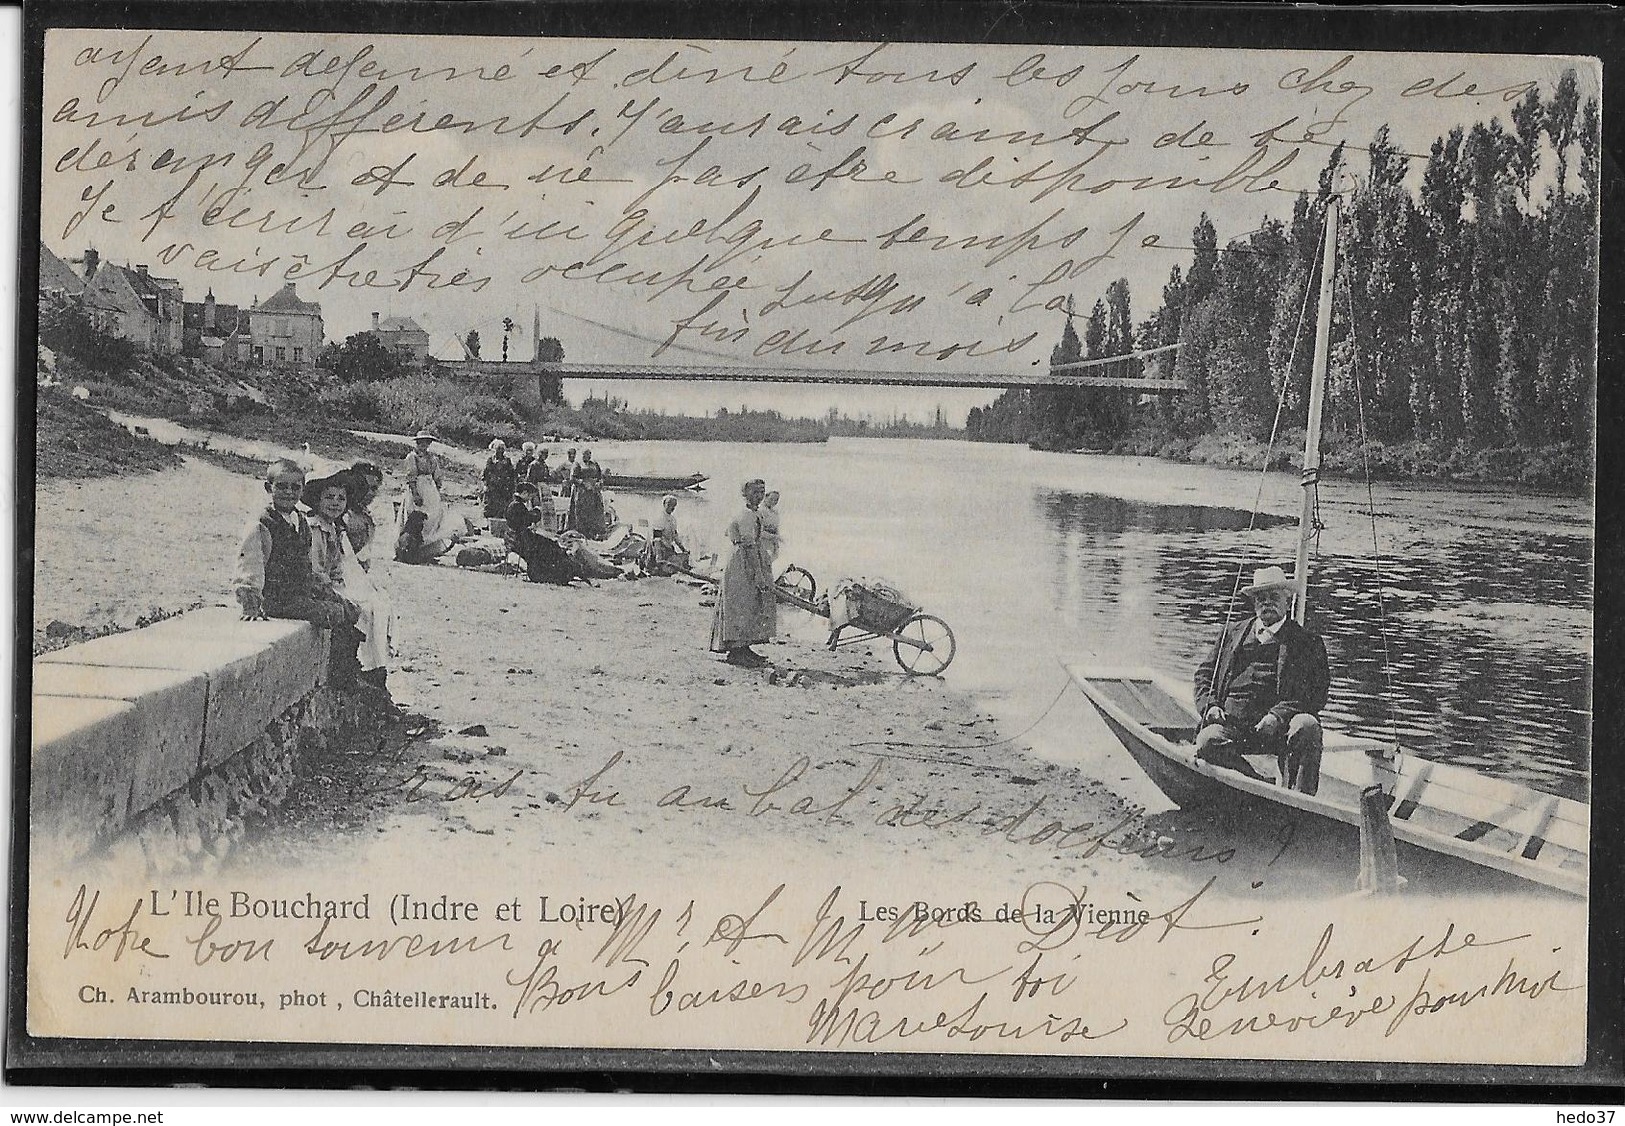 ayant dejeuné et diné tous les jours chez des
amis différents. J'aurais craint de te
déranger et de ne pas être disponible
Je t'écrirai d'ici quelque temps je
vais être très occupée jusqu'à la
fin du mois.
iras tu au bal des docteurs ?
L'Ile Bouchard (Indre et Loire)
Les Bords de la Vienne
Notre bon souvenir à Mr. et Mme Diot.
Ch. Arambourou, phot, Châtellerault.
Bons baisers pour toi
Marie Louise
Embrasse
Geneviève pour moi.
www.delcampe.net
hedo37